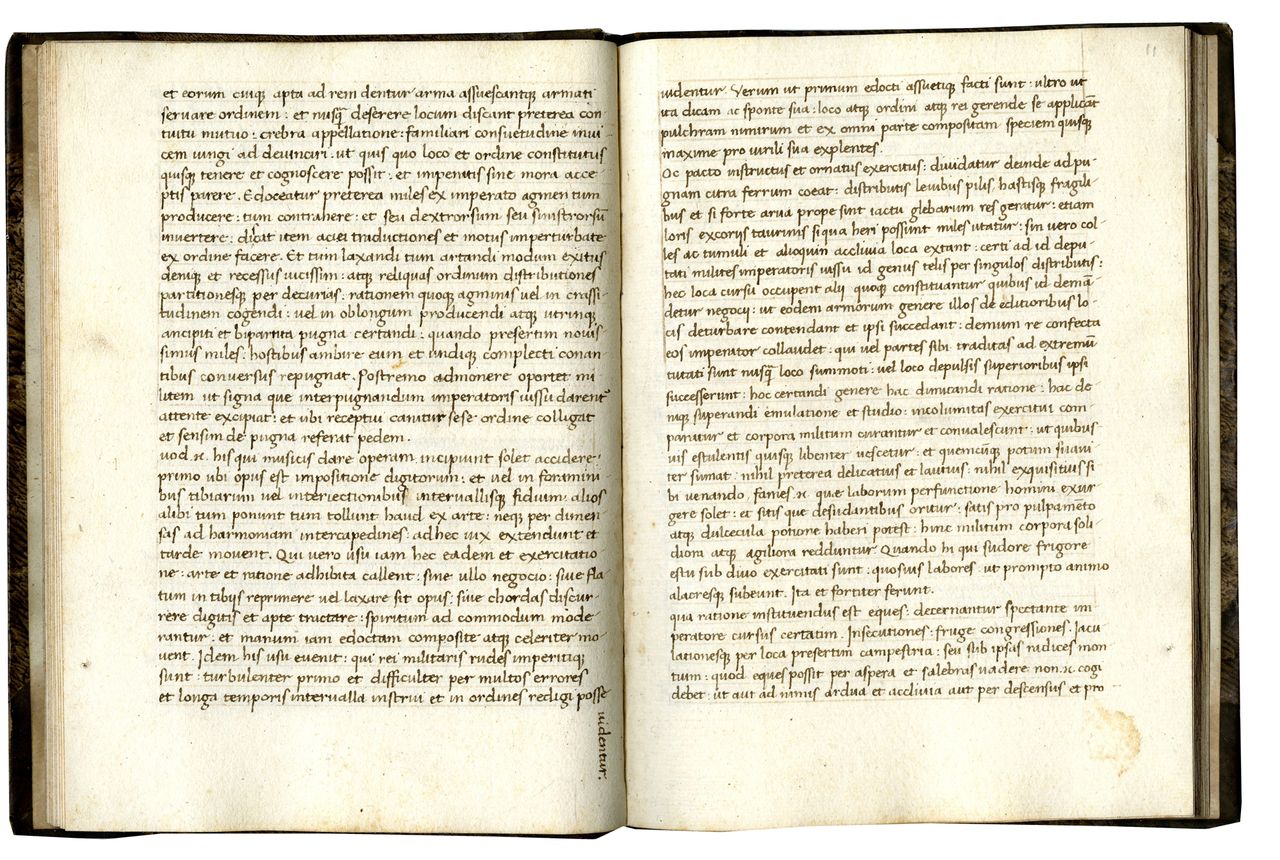 et eorum cuiq; apta ad rem dentur arma assuescantq; armati
servare ordinem : et nusq̃ deserere locum discant preterea con
tuitu mutuo : crebra appellatione : familiari consuetudine invi
cem iungi ad devinciri : ut quis quo loco et ordine constitutus
quisq; tenere et cognoscere possit : et impenitis sine mora acce-
ptis parere. Edoceatur preterea miles ex imperato agmen tum
producere : tum contrahere : et seu dextrorsum seu sinistrorsũ
invertere : dicat item aciei traductiones et motus imperturbate
ex ordine facere. Et tum laxandi tum artandi modum exitus
denique et recessus vicissim : atq; reliquas ordinum distributiones
partitionesq; per decurias : rationem quoq; agminis vel in crassi-
tudinem cogendi : vel in oblongum producendi atq; utrinq;
ancipiti et bipartita pugna certandi : quando presertim novis
simus miles : hostibus ambire eum et undiq; complecti conan
tibus conversus repugnat. Postremo admonere oportet mi
litem ut signa que inter pugnandum imperatoris iussu darent᷑
attente excipiat : et ubi receptui canitur sese ordine colligat
et sensim de pugna referat pedem.
uod .n. his qui musicis dare operam incipiunt solet accidere .
primo ubi opus est impositione digitorum : et vel in forami ni
bus tibiarum vel interiectionibus intervallisq; fidium : alios
alibi tum ponunt tum tollunt haud ex arte : neq; per dimen-
sas ad harmoniam intercapedines : ad hec vix extendunt et
tarde movent. Qui vero usu iam hec eadem et exercitatio
ne : arte et ratione adhibita callent : sine ullo negocio : sive fla
tum in tibijs reprimere vel laxare sit opus : sive chordas discur
rere digitis et apte tractare : spiritum ad commodum mode
rantur : et manum iam edoctam composite atq; celeriter mo-
vent. Idem his usu evenit : qui rei militaris rudes imperitiq;
sunt : turbulenter primo et difficulter per multos errores
et longa temporis intervalla instrui et in ordines redigi posse
videntur.
11
videntur. Verum ut primum edocti assuetiq; facti sunt : ultro ut
ita dicam ac sponte sua : loco atq; ordini atq; rei gerende se applicãt
pulchram nimirum et ex omni parte compositam speciem quisq;
maxime pro virili sua explentes.
Oc pacto instructus et ornatus exercitus : dividatur deinde ad pu-
gnam citra ferrum coeat : distributis levibus pilis hastisq; fragili-
bus et si forte arva prope sint iactu glebarum res geratur : etiam
loris ex corijs taurinis si qua heri possint miles utatur : sin vero col
les ac tumuli et alioquin acclivia loca extant : certi ad id depu-
tati milites imperatoris iussu id genus telis per singulos distributis :
hec loca cursu occupent alij quoq; constituantur quibus id demã
detur negocij : ut eodem armorum genere illos de editioribus lo-
cis deturbare contendant et ipsi succedant : demum re confecta
eos imperator collaudet : qui vel partes sibi traditas ad extremũ
tutati sunt nusq̃ loco summoti : vel loco depulsis superioribus ipsi
successerunt : hoc certandi genere hac dimicandi ratione : hac de-
niq; superandi emulatione et studio : incolumitas exercitui com-
paratur et corpora militum curantur et convalescunt : ut quibus
vis esculentis quisq; libenter vescetur : et quemcũq; potum suavi
ter sumat : nihil preterea delicatius et lautius : nihil exquisitius si
bi venando. fames .n. quæ laborum perfunctione homini exur
gere solet : et sitis que desudantibus oritur : satis pro pulpamẽto
atq; dulcecula potione haberi potest : hinc militum corpora soli-
diora atq; agiliora redduntur Quando hi qui sudore frigore
estu sub divo exercitati sunt : quosvis labores . ut prompto animo
alacresq; subeunt. Ita et fortiter ferunt.
qua ratione instituendus est eques : decernantur spectante im-
peratore cursus certatim. Insecutiones : fruge congressiones. Iacu-
lationesq; per loca presertim campestria : seu sub ipsas radices mon
tium : quod eques possit per aspera et salebras vadere non .n. cogi
debet : ut aut ad nimis ardua et acclivia aut per descensus et pro